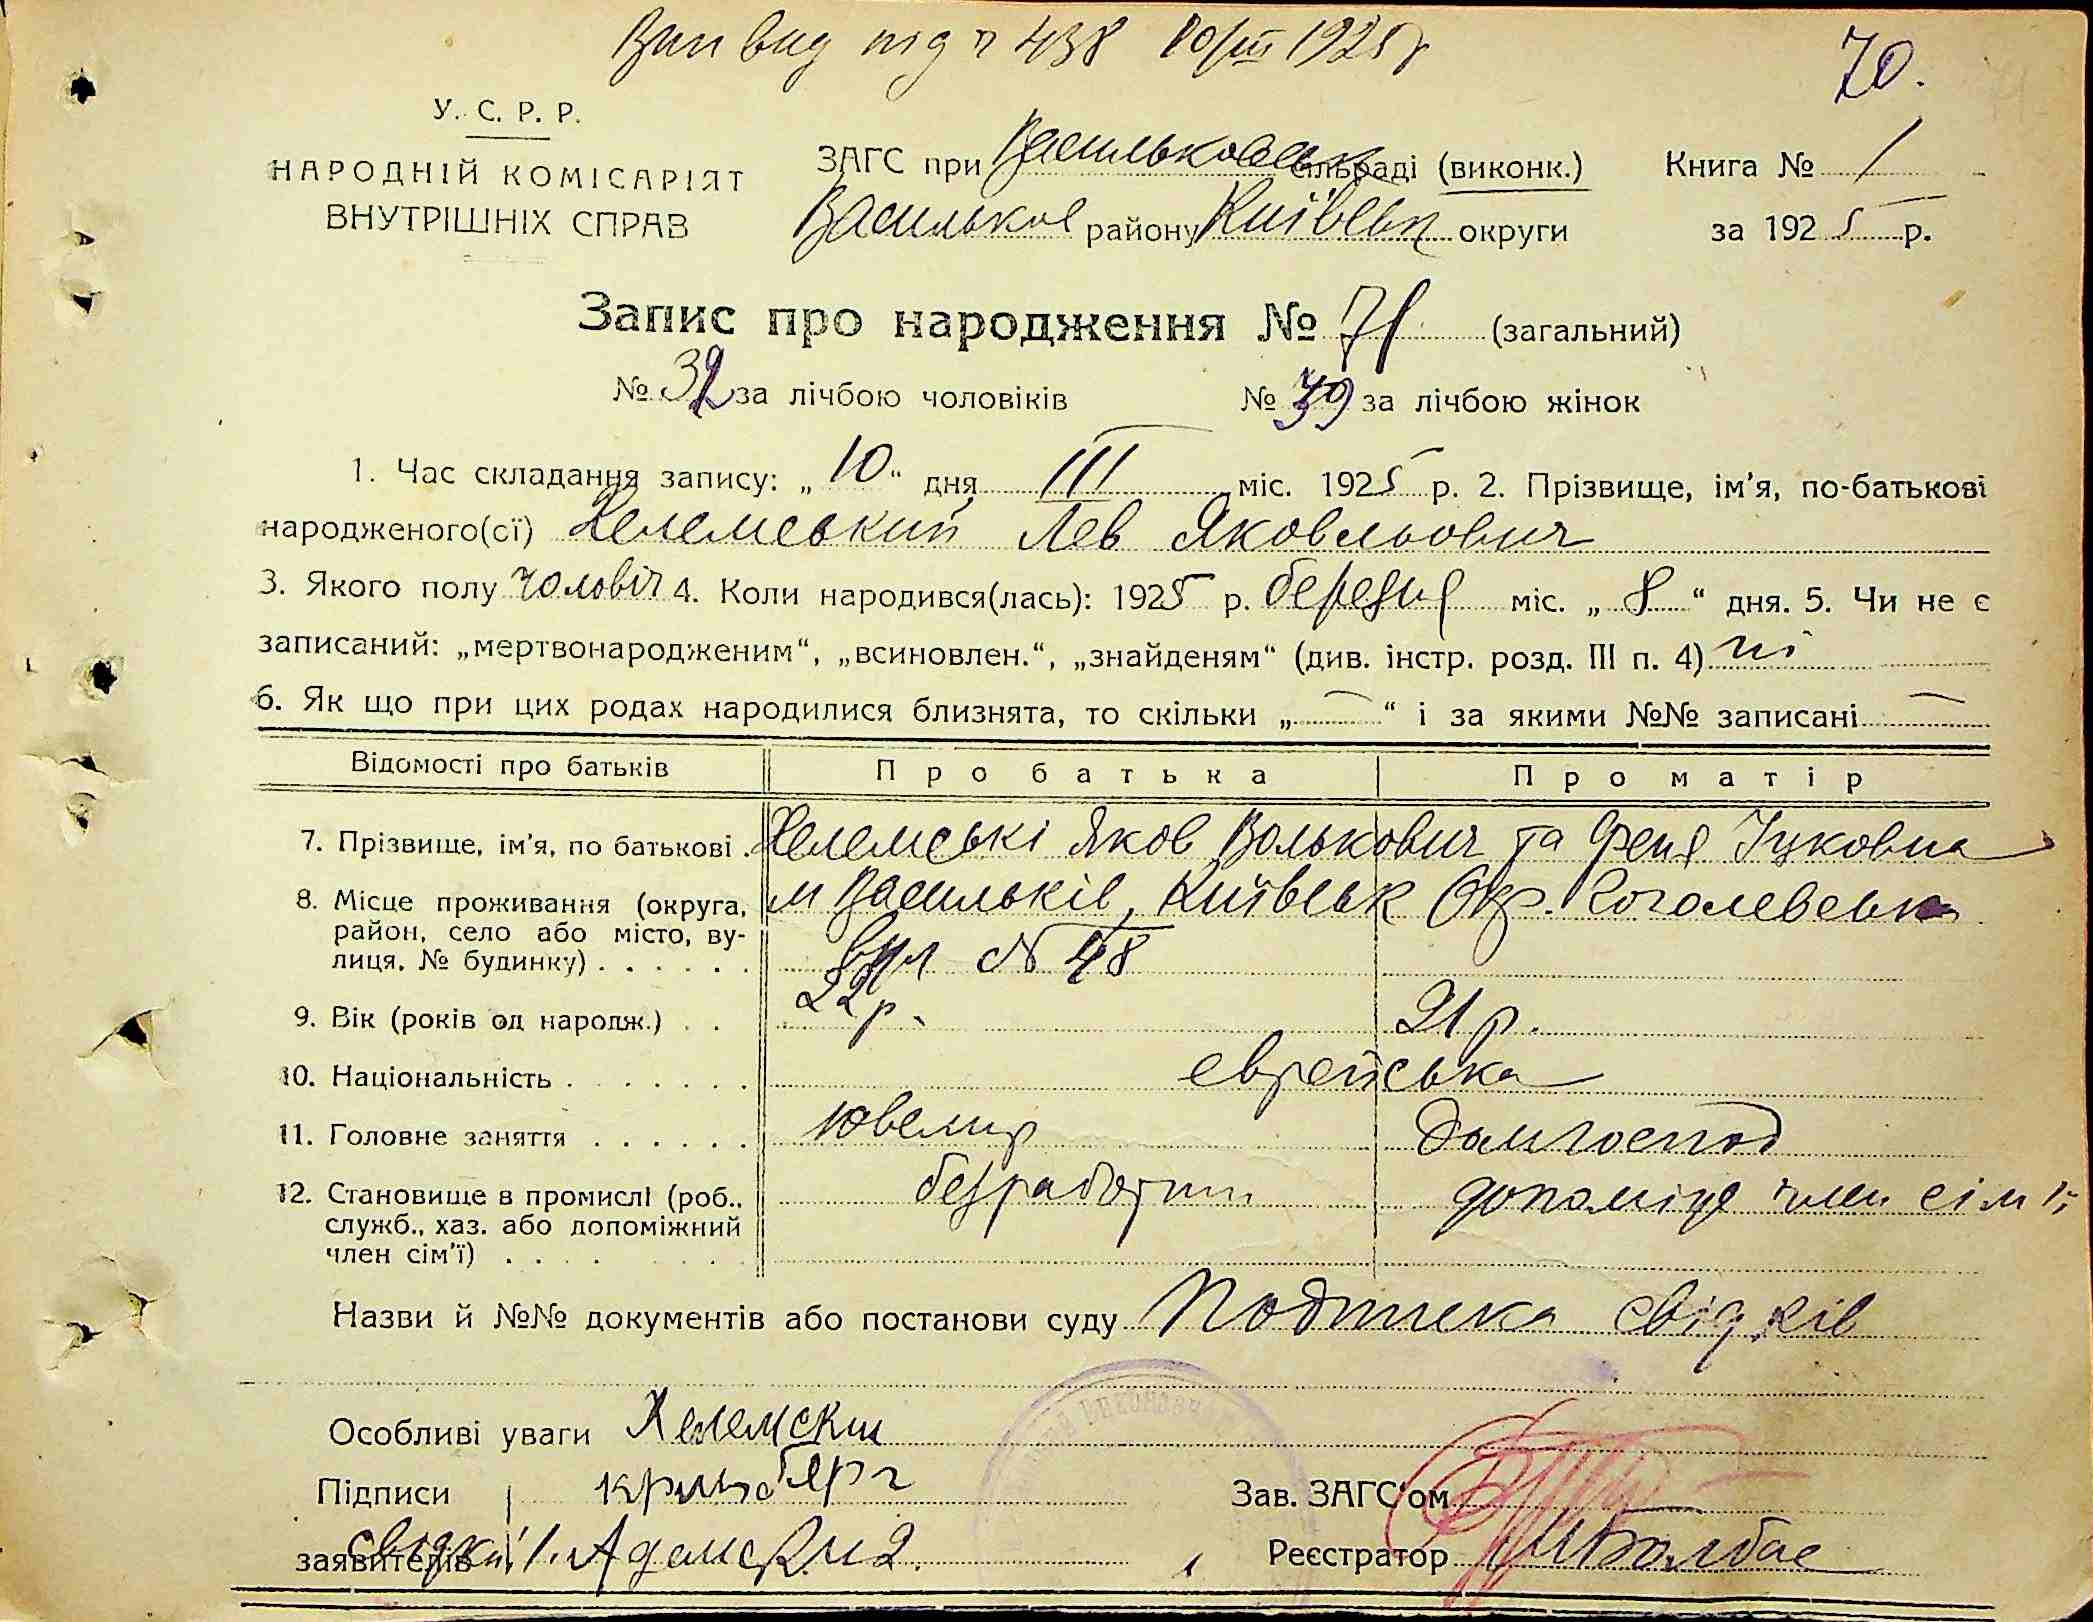 Вип вид під № 438 10/III 1925 р
70.
У. С. Р. Р.
НАРОДНІЙ КОМІСАРІЯТ
ВНУТРІШНІХ СПРАВ
ЗАГС при Васильковськ сільраді (виконк.)
Васильков району Київськ округи
Книга № 1
за 1925 р.
Запис про народження № 71 (загальний)
№ 32 за лічбою чоловіків № 39 за лічбою жінок
1. Час складання запису: „10“ дня III міс. 1925 р. 2. Прізвище, ім'я, по-батькові
народженого(сї) Хелемський Лев Яковльович
3. Якого полу чоловіч 4. Коли народився(лась): 1925 р. березня міс. „8“ дня. 5. Чи не є
записаний: „мертвонародженим“, „всиновлен.“, „знайденям“ (див. інстр. розд. III п. 4) ні
6. Як що при цих родах народилися близнята, то скільки „—“ і за якими №№ записані —
Відомості про батьків Про батька Про матір
7. Прізвище, ім'я, по батькові . Хелемські Яков Волькович та Феня Іцковна
8. Місце проживання (округа, м Васильків, Київськ Окр. Гоголевська
район, село або місто, ву-
лиця, № будинку) . . . . . . вул № 48
9. Вік (років од народж.) . . 22 р. 21 р.
10. Національність . . . . . . . еврейська
11. Головне заняття . . . . . . ювелир домгоспод
12. Становище в промислі (роб., безработни допоміж член сімї
служб., хаз. або допоміжний
член сім'ї) . . . .
Назви й №№ документів або постанови суду Подписка свідків
Особливі уваги Хелемски
Підписи
Зав. ЗАГС'ом
заявителів свідки: 1. Адамски 2.
Реєстратор